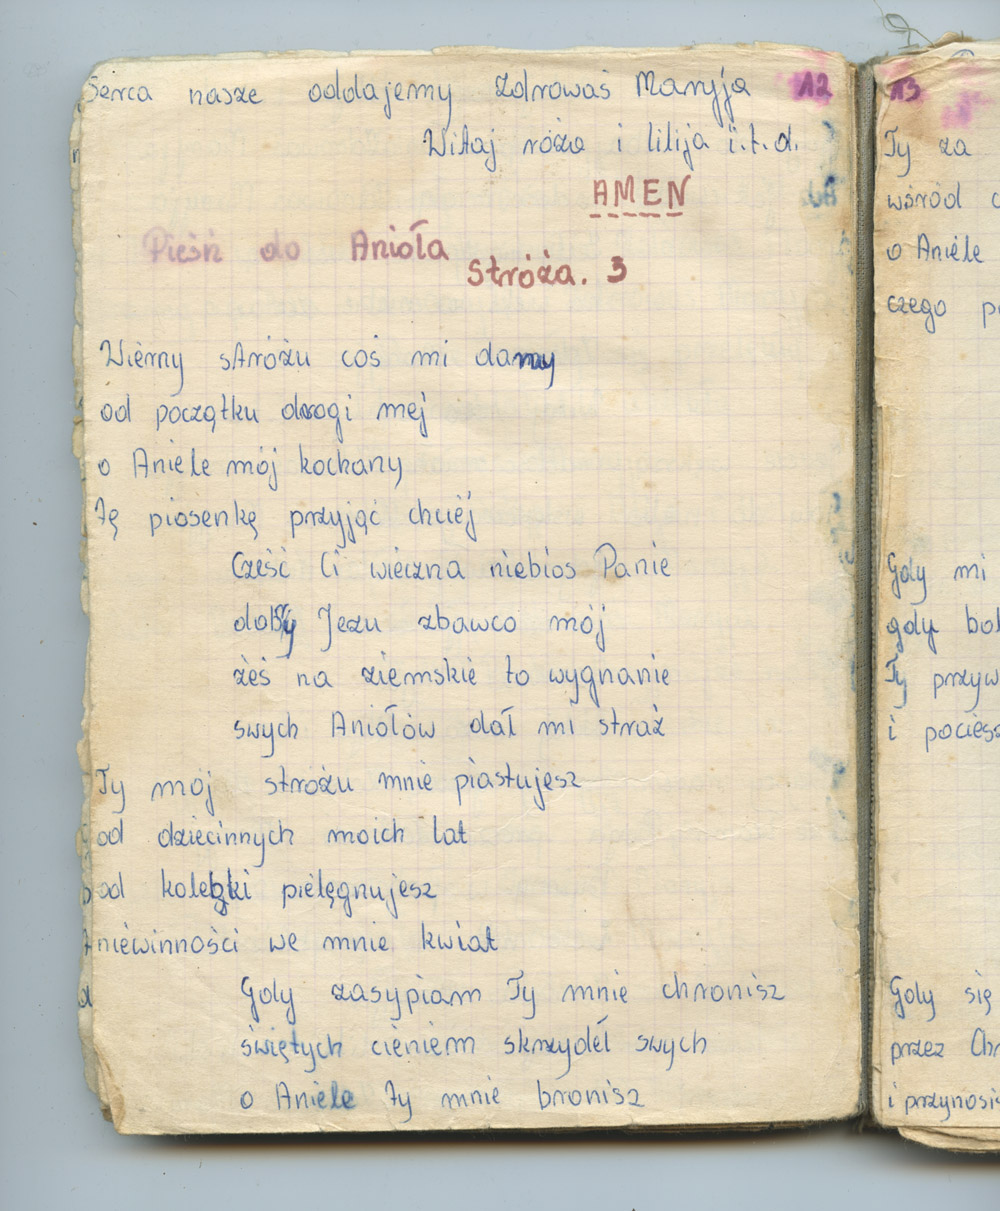 Serca nasze oddajemy Zdrowaś Maryja 12
Witaj róża i lilija i.t.d.
AMEN
Pieśń do Anioła
Stróża. 3
Wierny stróżu coś mi damy
od początku drogi mej
o Aniele mój kochany
Tę piosenkę przyjąć chciej
Cześć Ci wieczna niebios Panie
dobry Jezu zbawco mój
żeś na ziemskie to wygnanie
swych Aniołów dał mi straż
Ty mój stróżu mnie piastujesz
od dziecinnych moich lat
od kolebki pielęgnujesz
niewinności we mnie kwiat
Gdy zasypiam Ty mnie chronisz
świętych cieniem skrzydeł swych
o Aniele Ty mnie bronisz
13
Ty za
wśród
o Aniele
czego
Gdy mi
gdy
Ty
i
Gdy się
przez
i